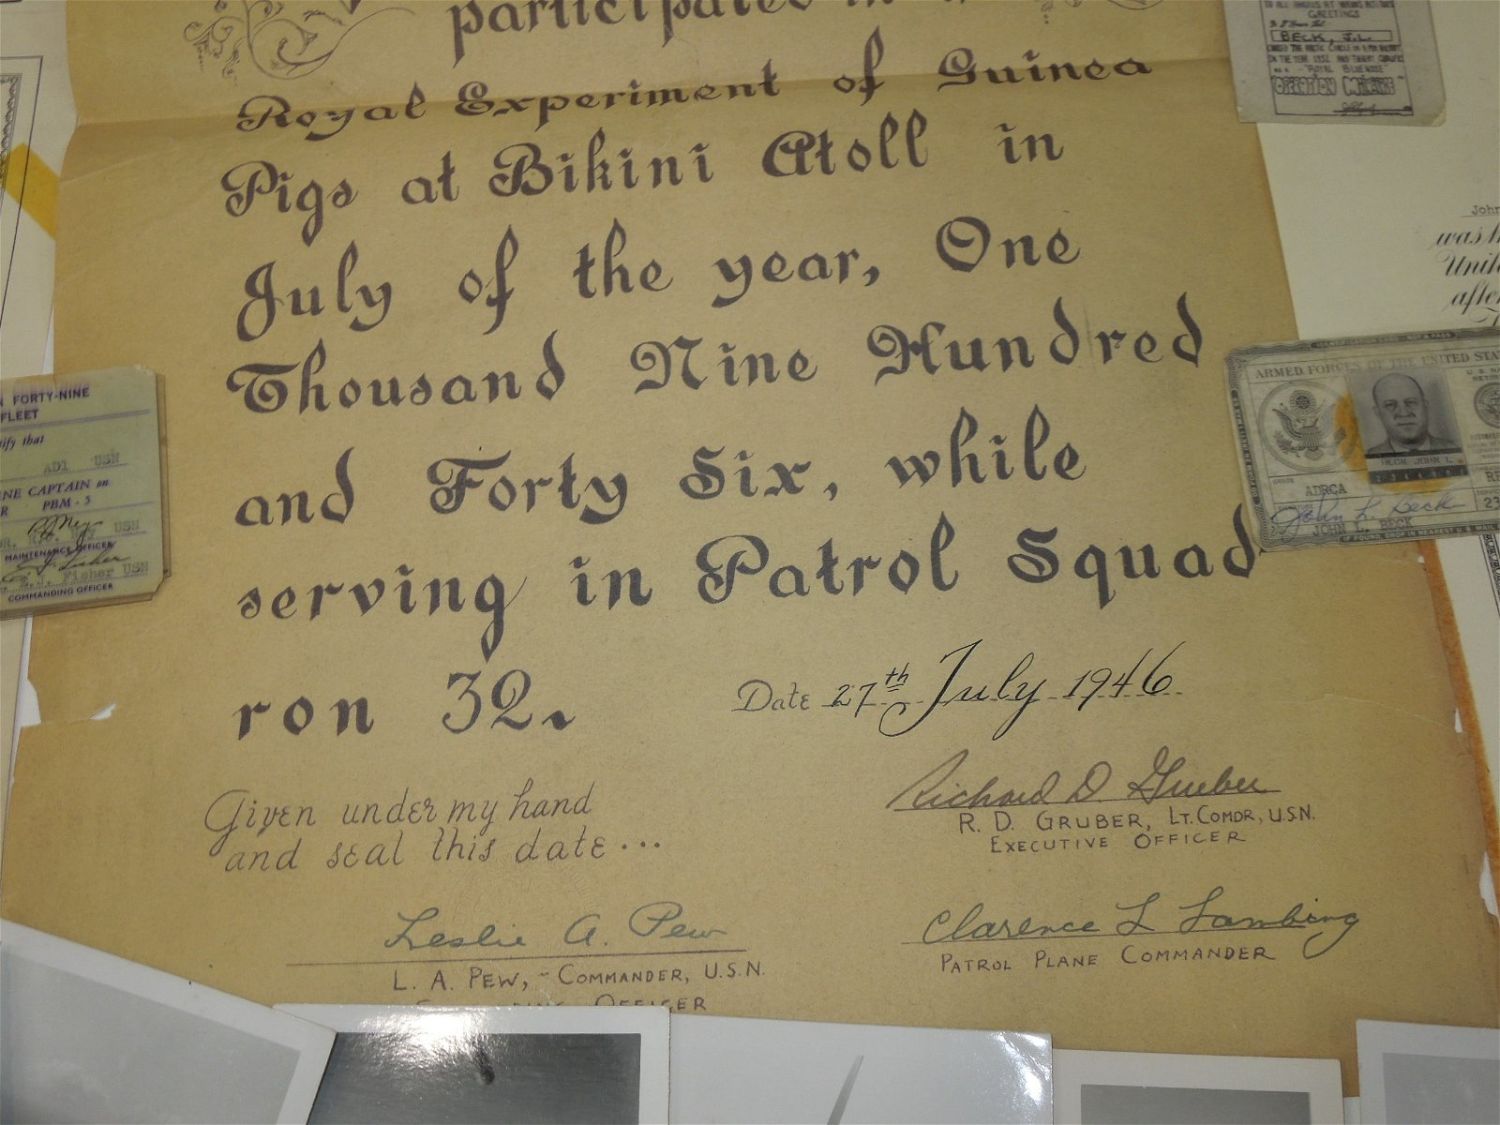 participated in
Royal Experiment of Guinea
Pigs at Bikini Atoll in
July of the year, One
Thousand Nine Hundred
and Forty Six, while
serving in Patrol Squad
ron 32.
Date 27th July 1946
Given under my hand
and seal this date...
Richard D. Gruber
R. D. GRUBER, LT. COMDR, U.S.N.
EXECUTIVE OFFICER
Leslie A. Pew
L. A. PEW, - COMMANDER, U.S.N.
OFFICER
Clarence L Lambing
PATROL PLANE COMMANDER
FORTY-NINE
FLEET
tify that
AD1 USN
NE CAPTAIN on
PBM-5
USN
MAINTENANCE OFFICER
Fisher USN
COMMANDING OFFICER
GREETINGS
BECK, J.L.
ARMED FORCES OF THE UNITED STAT
BECK JOHN L
ADRCA
John L. Beck
JOHN L. BECK
John
was h
Unit
after